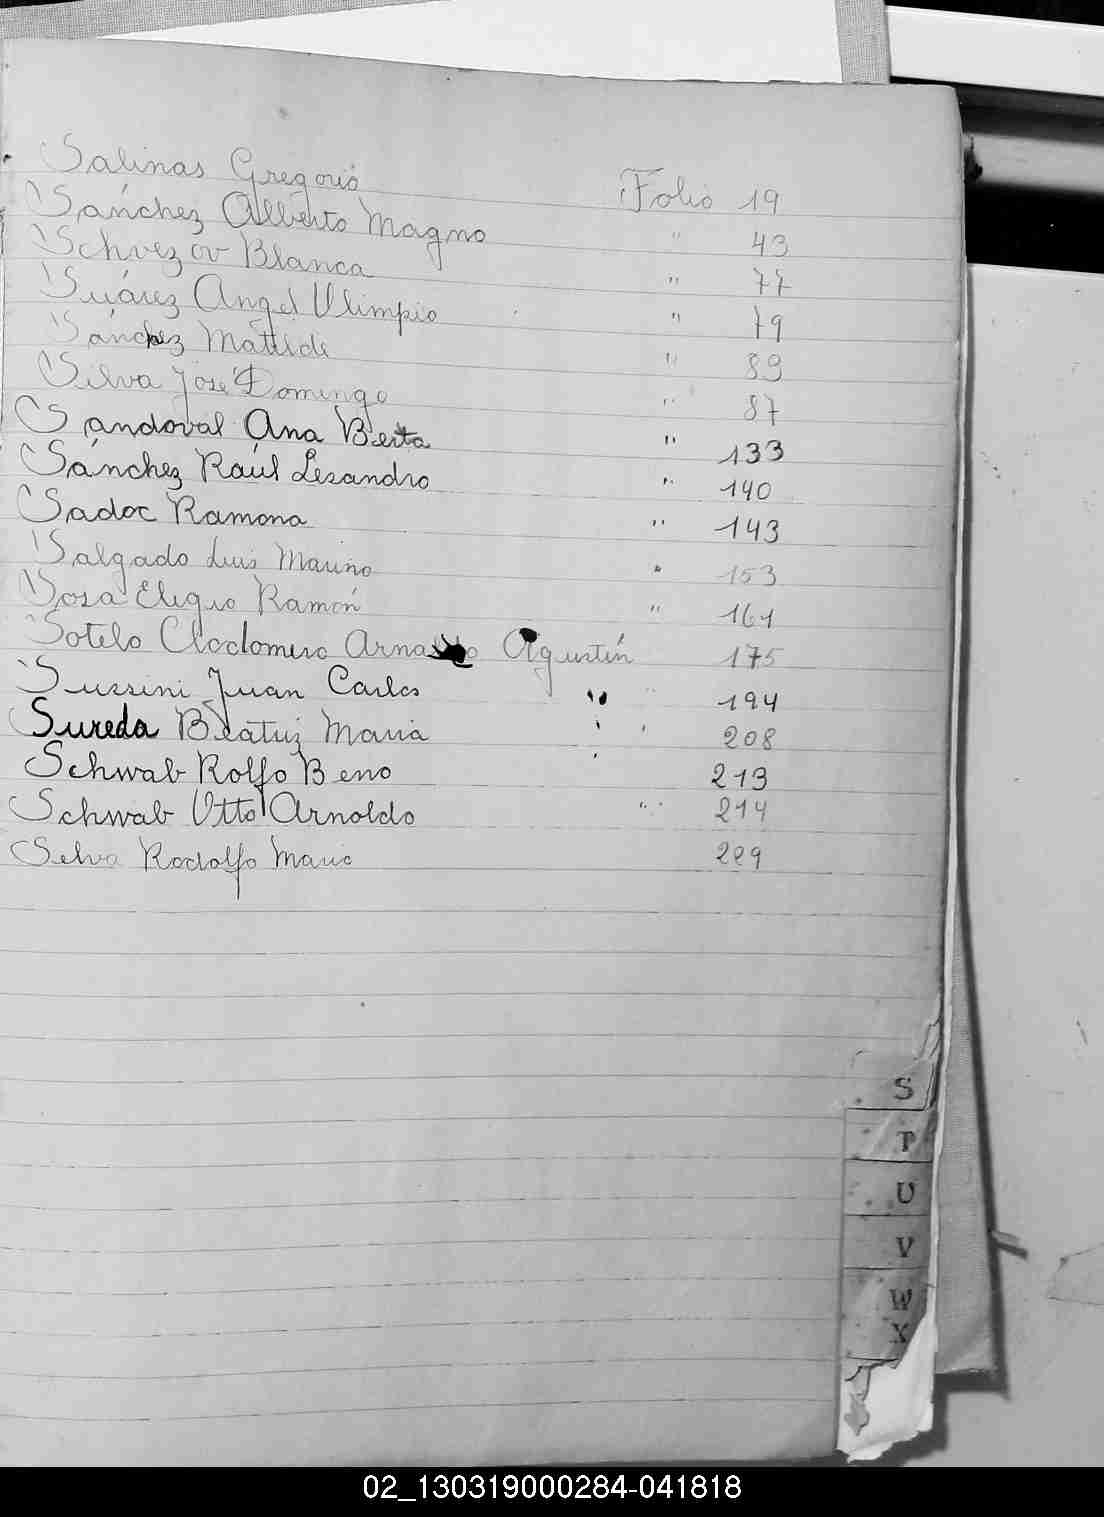 Salinas Gregorio Folio 19
Sánchez Alberto Magno " 43
Schvezov Blanca " 77
Suárez Angel Olimpio " 79
Sánchez Matilde " 83
Silva José Domingo " 87
Sandoval Ana Berta " 133
Sánchez Raúl Lisandro " 140
Sadoc Ramona " 143
Salgado Luis Marino " 153
Sosa Eligio Ramón " 161
Sotelo Clodomiro Agustín 175
Sussini Juan Carlos " 194
Sureda Beatriz Maria " 208
Schwab Rolfo Beno 213
Schwab Otto Arnoldo " 214
Selva Rodolfo Mario 229
S
T
U
V
W
X
02_130319000284-041818